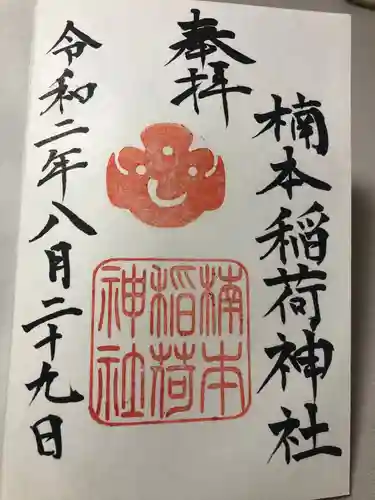 奉拝
楠本稲荷神社
楠本
稲荷
神社
令和二年八月二十九日